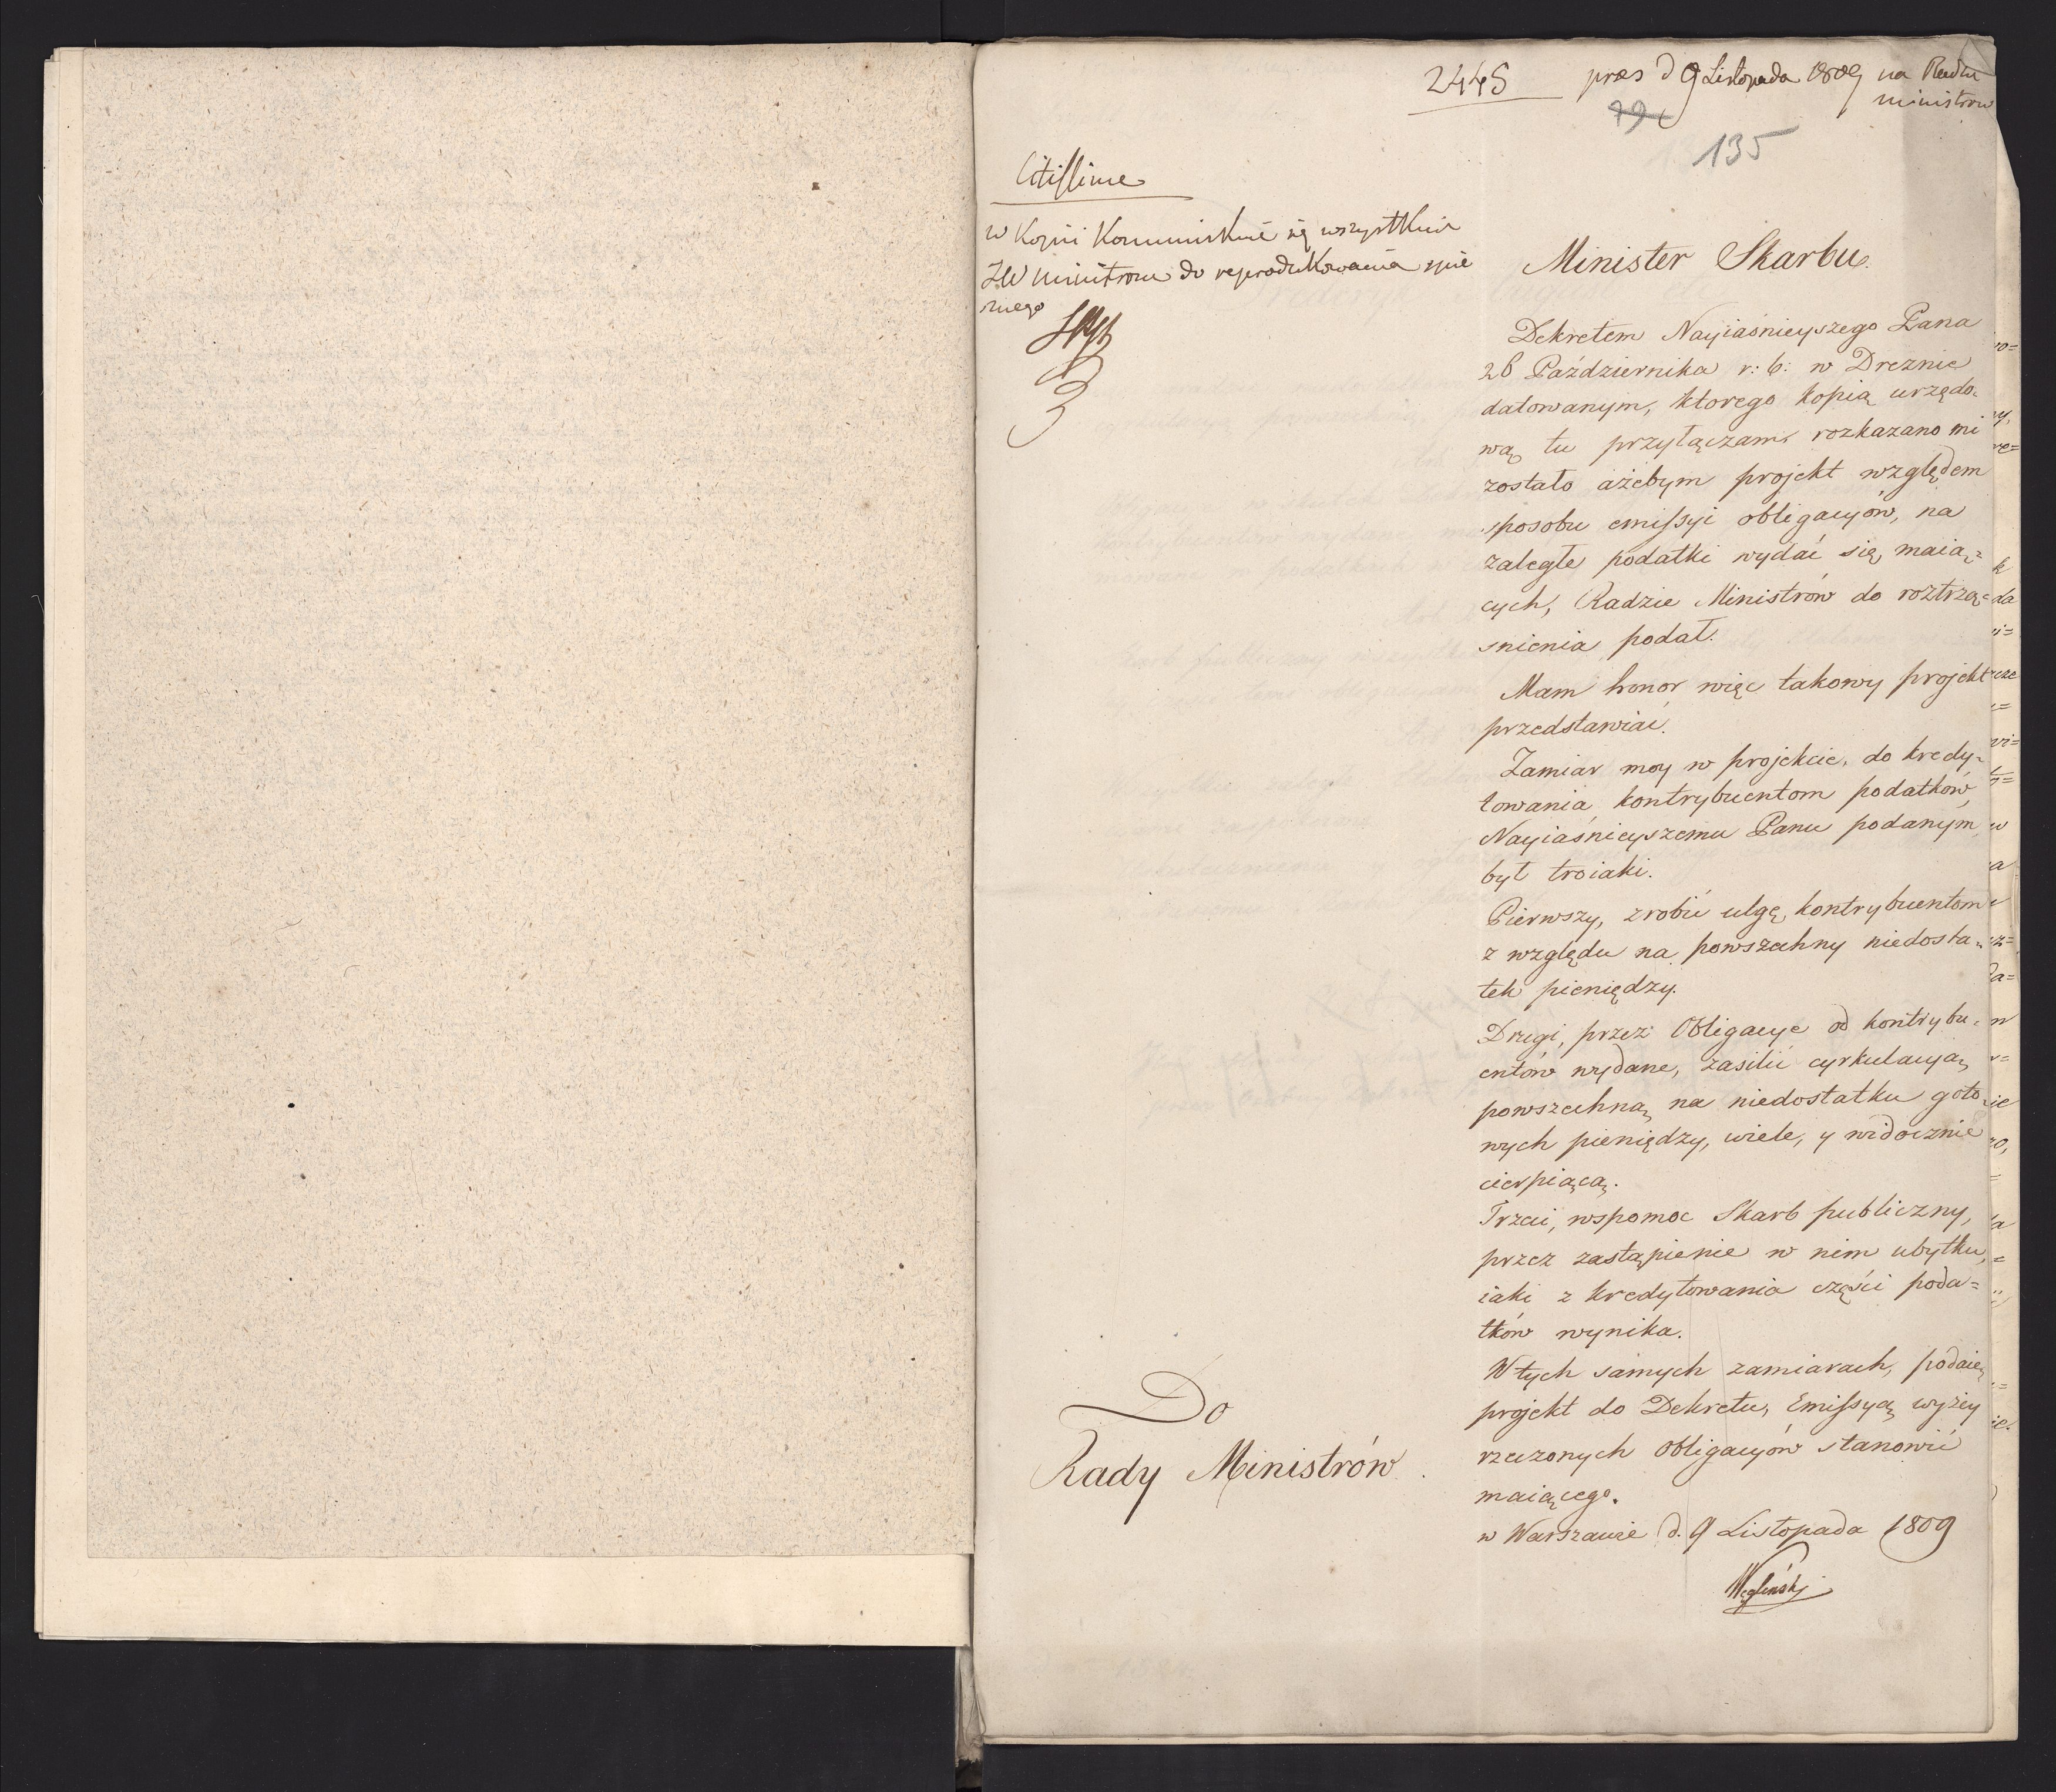 2445 pres d 9 Listopada 1809 na Radzie
ministrow
79
135
Citissime
w Kopii Kommunikuie się wszystkim
JW ministrom do reprodukowania spie
sznego
Minister Skarbu.
Dekretem Nayiaśnieyszego Pana
28 Października r: b: w Dreznie
datowanym, ktorego kopią urzędo-
wą tu przyłączam, rozkazano mi
zostało ażebym projekt względem
sposobu emissyi obligacyów, na
zaległe podatki wydać się maią-
cych, Radzie Ministrów do roztrzą-
snienia podał.
Mam honor więc takowy projekt
przedstawiać.
Zamiar moy w projekcie, do kredy-
towania kontrybuentom podatków,
Nayiaśnieyszemu Panu podanym,
był troiaki.
Pierwszy, zrobić ulgę kontrybuentom
z względu na powszechny niedosta-
tek pieniędzy.
Drugi, przez Obligacye od kontrybu-
entów wydane, zasilić cyrkulacyą
powszechną na niedostatku goto-
wych pieniędzy, wiele, y widocznie
cierpiącą.
Trzeci, wspomoc Skarb publiczny,
przez zastąpienie w nim ubytku,
iaki z kredytowania części poda=
tków wynika.
W tych samych zamiarach, podaię
projekt do Dekretu, Emissyą wyżey
rzeczonych Obligacyów stanowić
maiącego.
w Warszawie d. 9 Listopada 1809
Węgleński
Do
Rady Ministrów